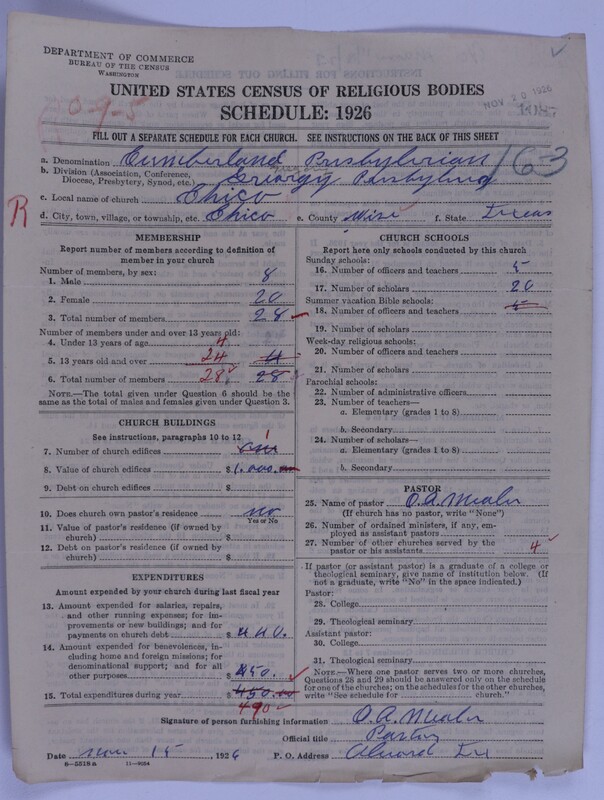 DEPARTMENT OF COMMERCE
BUREAU OF THE CENSUS
WASHINGTON
NOV 20 1926
UNITED STATES CENSUS OF RELIGIOUS BODIES
SCHEDULE: 1926
FILL OUT A SEPARATE SCHEDULE FOR EACH CHURCH. SEE INSTRUCTIONS ON THE BACK OF THIS SHEET
a. Denomination Cumberland Presbyterian
163
b. Division (Association, Conference, Diocese, Presbytery, Synod, etc.) Presbytery
c. Local name of church Chico
R
d. City, town, village, or township, etc. Chico e. County Wise f. State Texas
MEMBERSHIP
Report number of members according to definition of member in your church
Number of members, by sex:
1. Male 8
2. Female 20
3. Total number of members 28
Number of members under and over 13 years old:
4. Under 13 years of age 4
5. 13 years old and over 24
6. Total number of members 28 28
NOTE.—The total given under Question 6 should be the same as the total of males and females given under Question 3.
CHURCH BUILDINGS
See instructions, paragraphs 10 to 12
7. Number of church edifices 1
8. Value of church edifices $1,000.00
9. Debt on church edifices $
10. Does church own pastor's residence? no
Yes or No
11. Value of pastor's residence (if owned by church) $
12. Debt on pastor's residence (if owned by church) $
EXPENDITURES
Amount expended by your church during last fiscal year
13. Amount expended for salaries, repairs, and other running expenses; for improvements or new buildings; and for payments on church debt $440.
14. Amount expended for benevolences, including home and foreign missions; for denominational support; and for all other purposes $
15. Total expenditures during year $450.00
490
CHURCH SCHOOLS
Report here only schools conducted by this church
Sunday schools:
16. Number of officers and teachers 5
17. Number of scholars 20
Summer vacation Bible schools:
18. Number of officers and teachers 5
19. Number of scholars
Week-day religious schools:
20. Number of officers and teachers
21. Number of scholars
Parochial schools:
22. Number of administrative officers
23. Number of teachers—
a. Elementary (grades 1 to 8)
b. Secondary
24. Number of scholars—
a. Elementary (grades 1 to 8)
b. Secondary
PASTOR
25. Name of pastor O. A. Mealer
(If church has no pastor, write "None")
26. Number of ordained ministers, if any, employed as assistant pastors
27. Number of other churches served by the pastor or his assistants 4
If pastor (or assistant pastor) is a graduate of a college or theological seminary, give name of institution below. (If not a graduate, write "No" in the space indicated.)
Pastor:
28. College
29. Theological seminary
Assistant pastor:
30. College
31. Theological seminary
NOTE.—Where one pastor serves two or more churches, Questions 28 and 29 should be answered only on the schedule for one of the churches; on the schedules for the other churches, write "See schedule for church."
Signature of person furnishing information O. A. Mealer
Official title Pastor
Date Nov 15, 1926 P. O. Address Alvord Tex
8—5318 a 11—9684